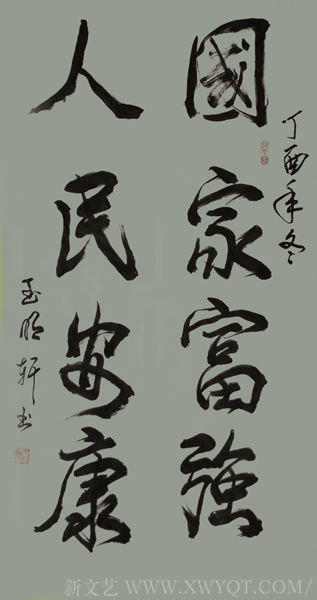 丁酉年冬
國家富強
人民安康
玉明軒书
新文艺 WWW.XWYQT.COM/